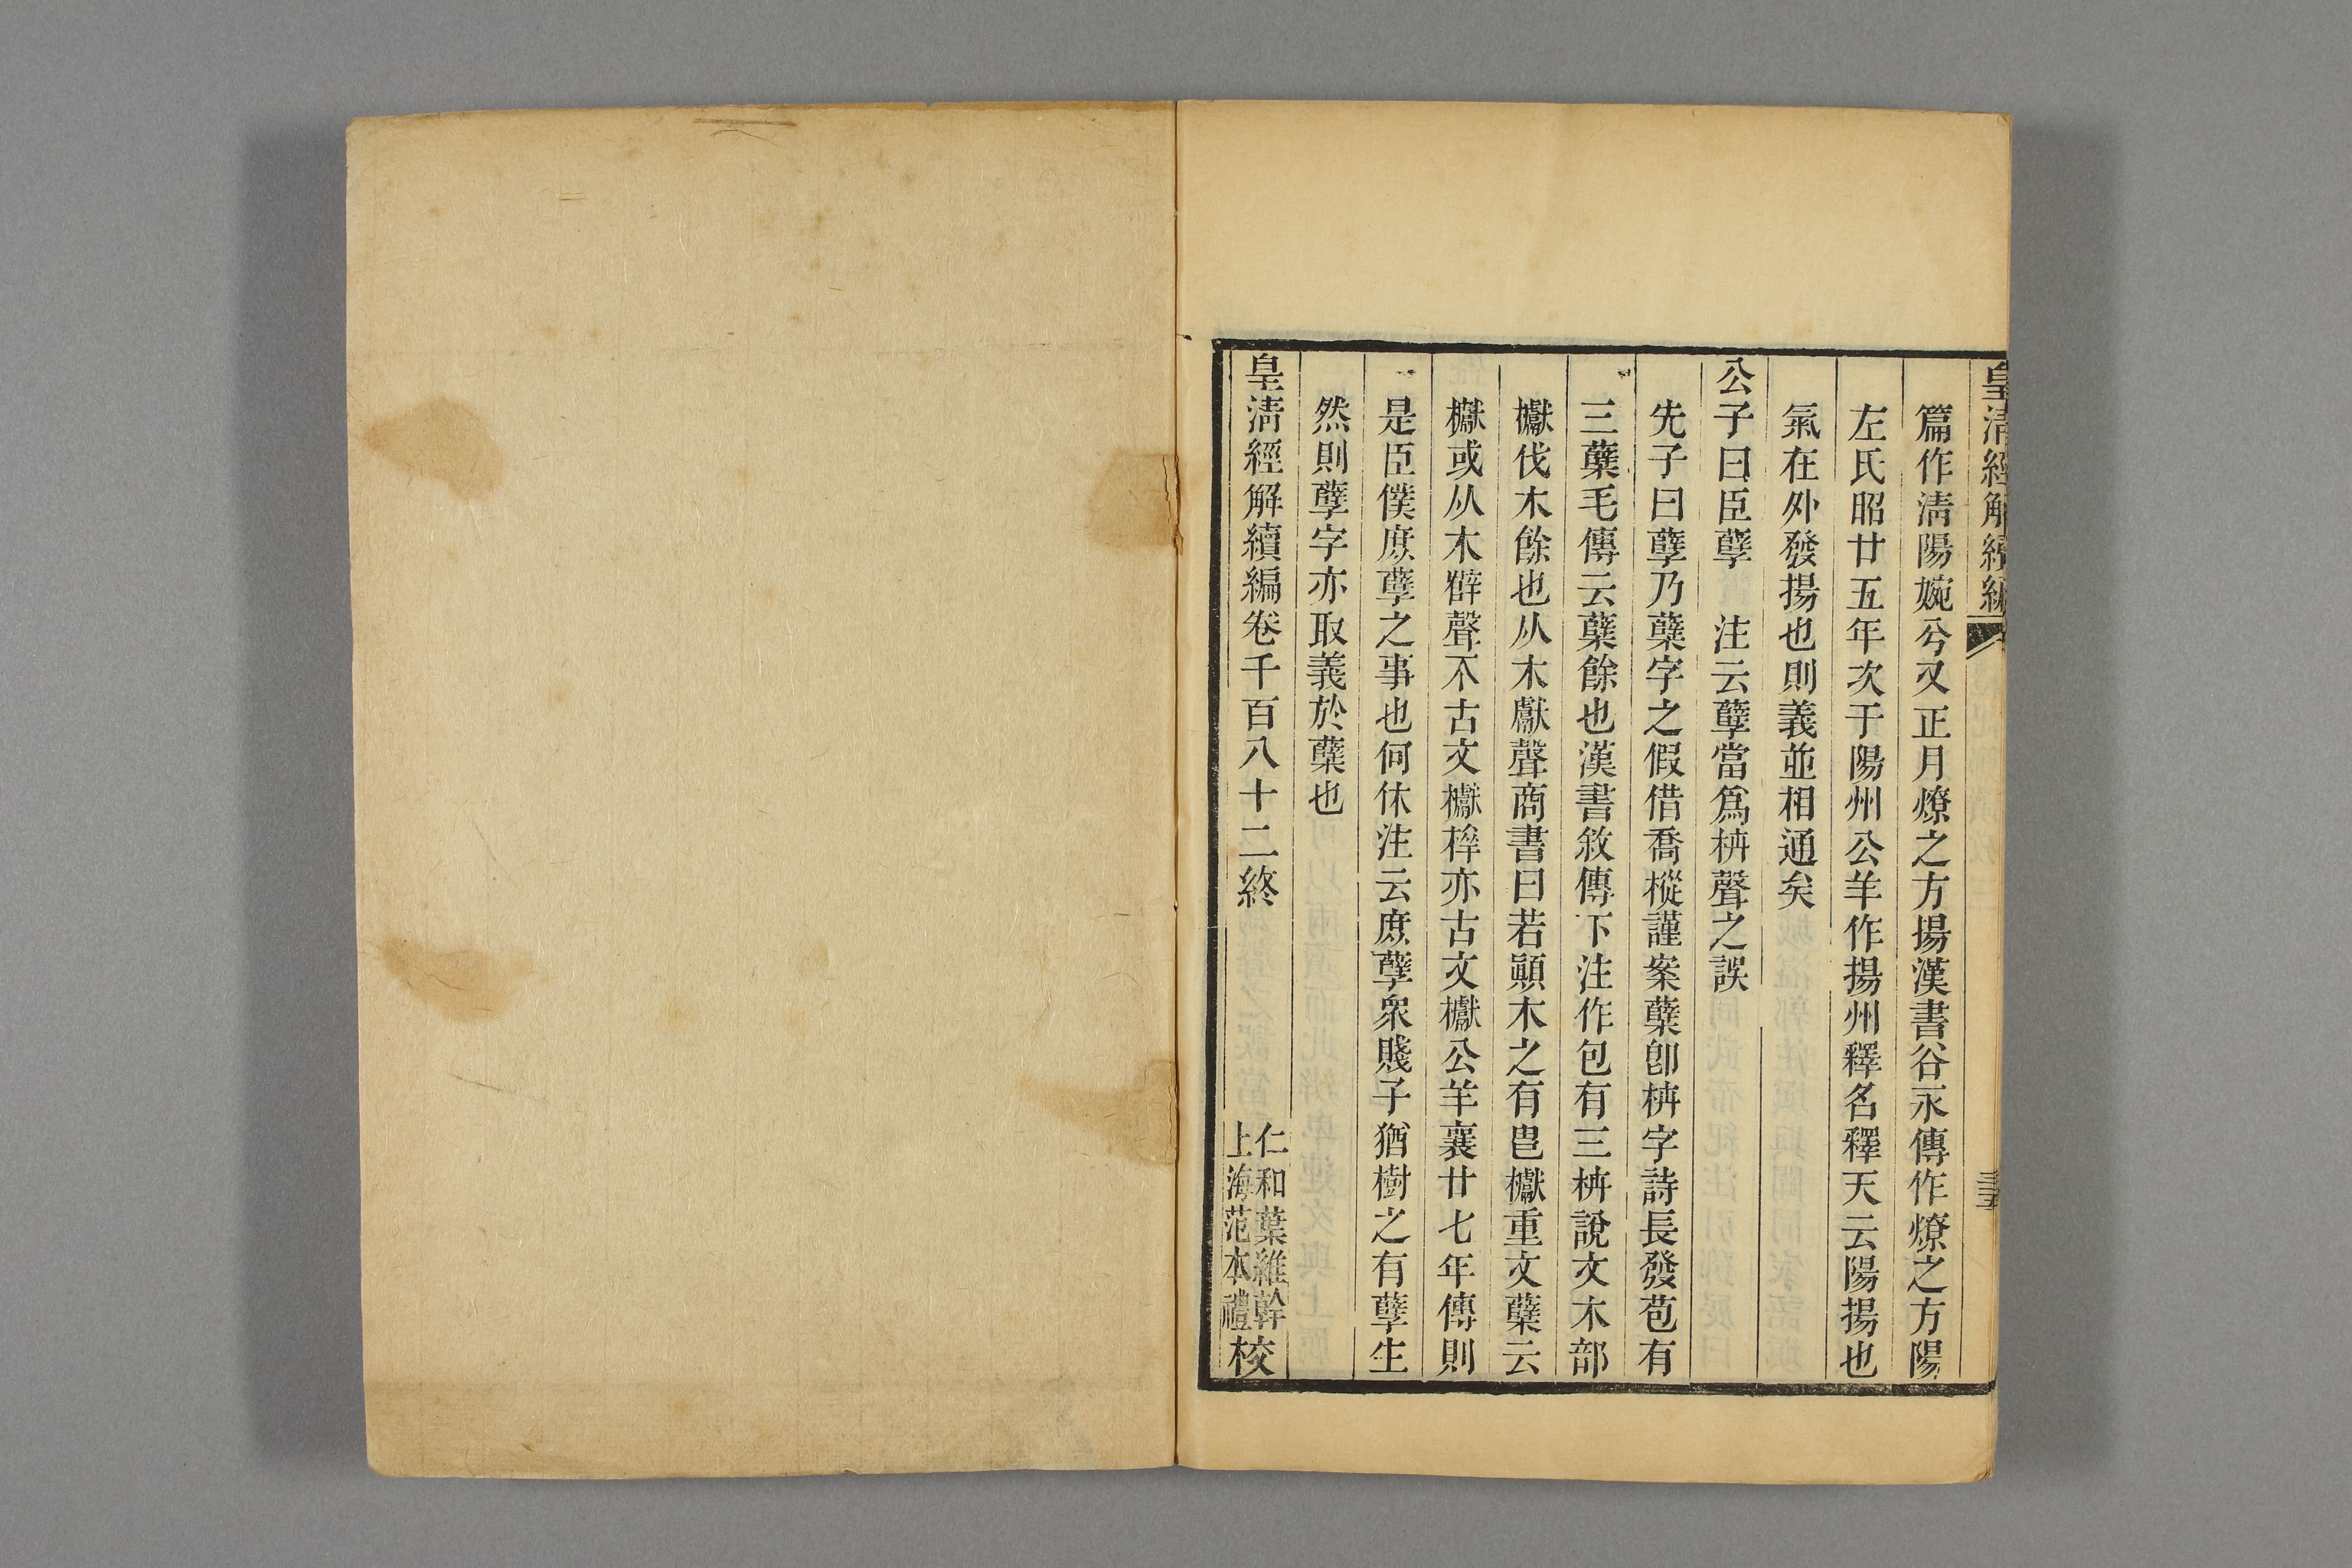 皇清經解續編
三五
篇作淸陽婉兮又正月燎之方揚漢書谷永傳作燎之方陽
左氏昭廿五年次于陽州公羊作揚州釋名釋天云陽揚也
氣在外發揚也則義並相通矣
公子曰臣孽　注云孽當爲枿聲之誤
先子曰孽乃蘖字之假借喬樅謹案蘖卽枿字詩長發苞有
三蘖毛傳云蘖餘也漢書敘傳下注作包有三枿說文木部
櫱伐木餘也从木獻聲商書曰若顚木之有㽕櫱重文蘖云
櫱或从木辥聲不古文櫱梓亦古文櫱公羊襄廿七年傳則
是臣僕庶孽之事也何休注云庶孽衆賤子猶樹之有孽生
然則孽字亦取義於蘖也
皇淸經解續編卷千百八十二終
仁和葉維幹
上海范本禮
校